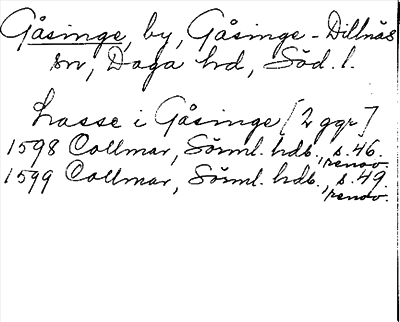 Gåsinge, by, Gåsinge-Dillnäs
sn, Daga hd, Söd. l.
Lasse i Gåsinge [2 ggr]
1598 Collmar, Sörml. hdb., s. 46.
renov.
1599 Collmar, Sörml. hdb., s. 49.
renov.